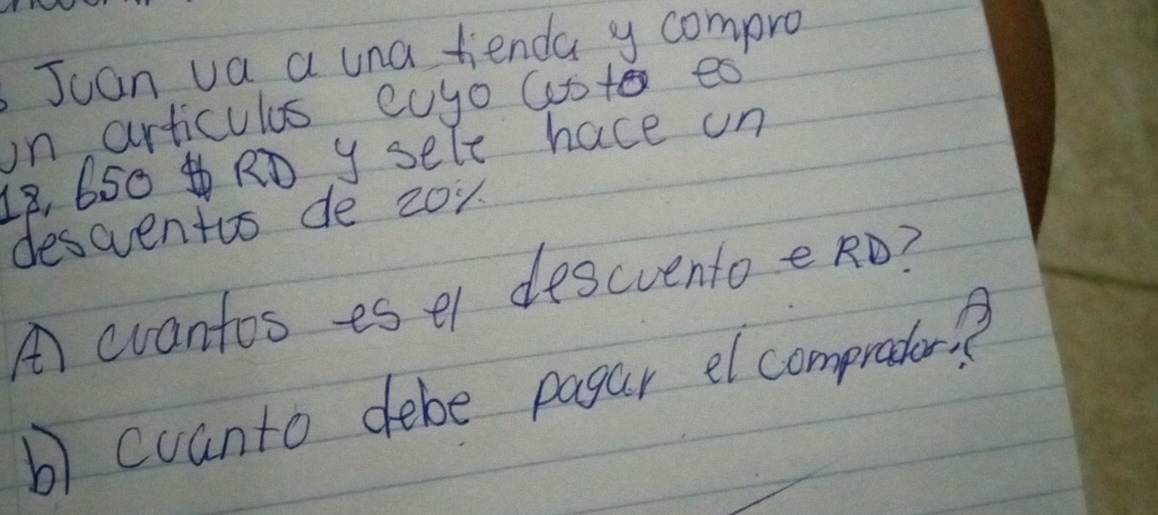 Juan va a una tienda y compro
un articulos cuyo costo es
650 $ RD y sele hace un
descuentos de 20%
A) cuantos es el descuento e RD?
b) cuanto debe pagar el comprador?